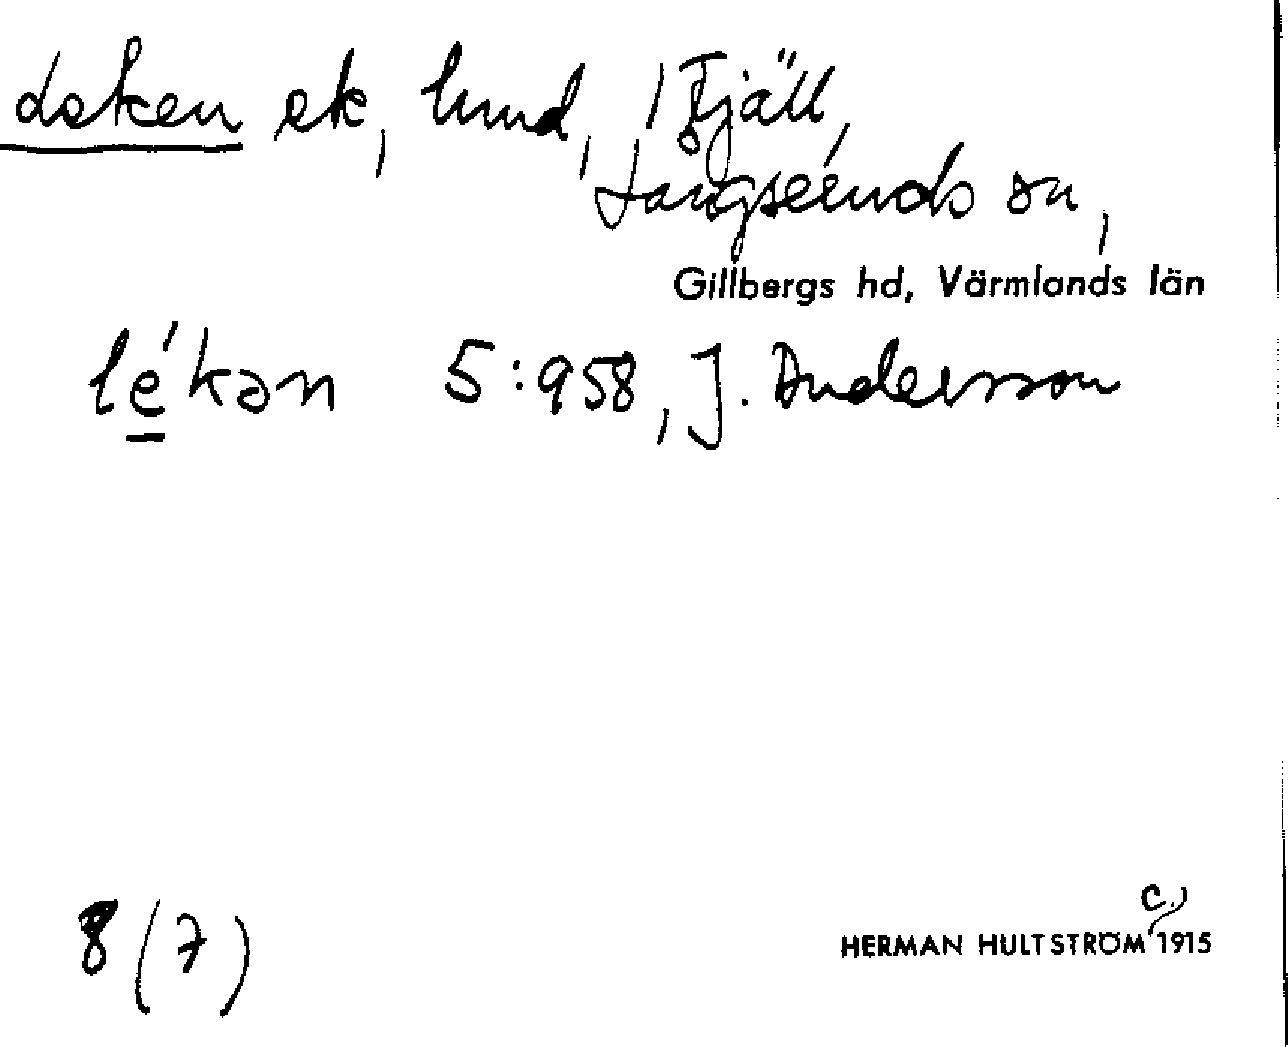 Leken ek, hmd, i Fjäll,
Långseruds sn,
Gillbergs hd, Värmlands län
lékən 5:958, J. Andersson
8 (7)
c.
HERMAN HULTSTRÖM 1915